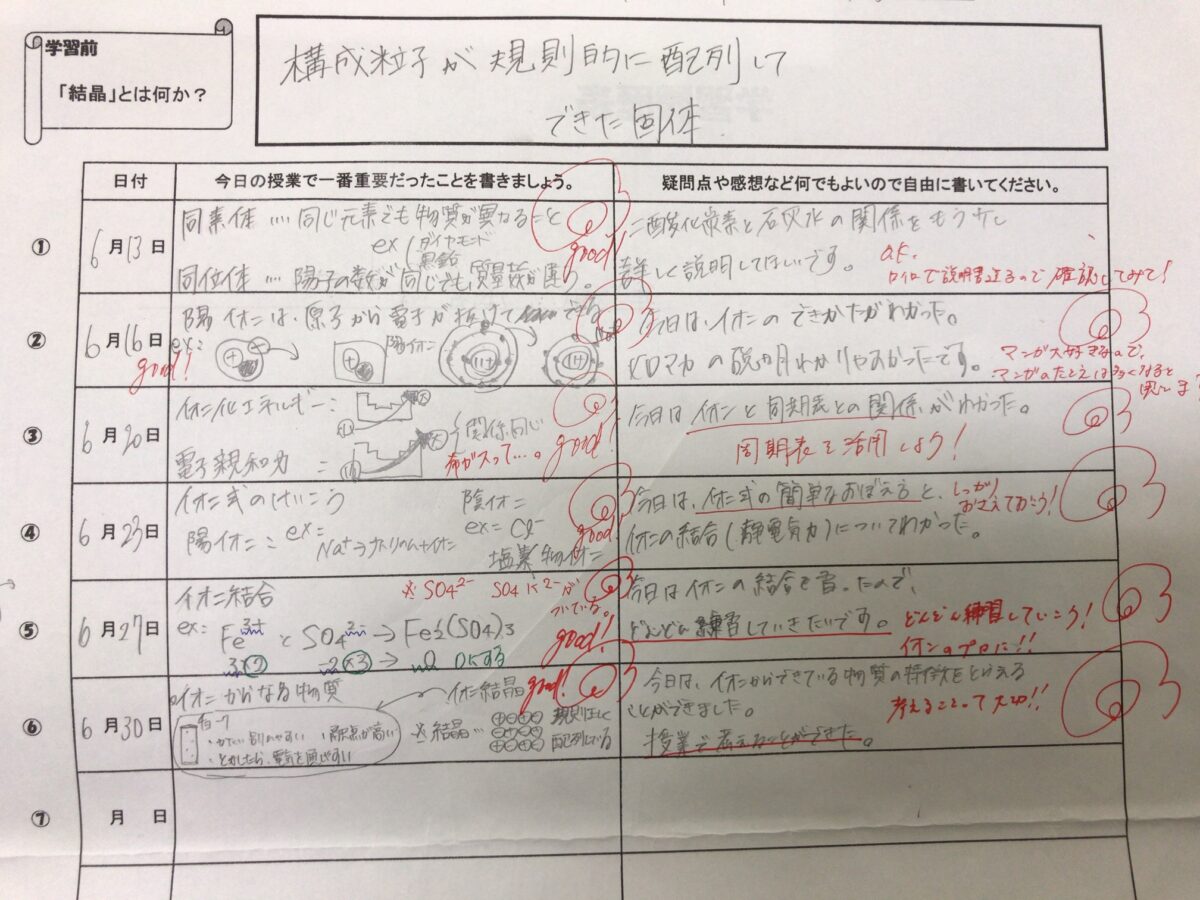 学習前
「結晶」とは何か？
構成粒子が規則的に配列して
できた固体
日付
今日の授業で一番重要だったことを書きましょう。
疑問点や感想など何でもよいので自由に書いてください。
①
6月13日
同素体 …. 同じ元素でも物質が異なること
ex(ダイヤモンド
黒鉛
同位体 …. 陽子の数が同じでも質量数が違う。
good!
二酸化炭素と石灰水の関係をもう少し
詳しく説明してほしいです。
O.K.
ロイロで説明書送るので確認してみて!
②
6月16日
陽イオンは、原子から電子が抜けて
ex=
陽イオン
11+
11+
good!
今日は、イオンのできかたがわかった。
の説明わかりやすかったです。
マンガ大好きなので、
マンガのたとえは多くなると
思います
③
6月20日
イオン化エネルギー:
電子親和力 :
関係同じ
希ガスって…。
good!
今日はイオンと周期表との関係がわかった。
周期表を活用しよう!
④
6月23日
イオン式のけいこう
陽イオン: ex=
Na+→ナトリウムイオン
陰イオン
ex= Cl-
塩素物イオン
good!
今日は、イオン式の簡単なおぼえ方と、
しっかり
おさえておこう!
イオンの結合(静電気力)についてわかった。
⑤
6月27日
イオン結合
※SO4 2- SO4に2-が
ついている。
ex= Fe3+ と SO4 2- → Fe2(SO4)3
3×2 -2×3 → 0 0にする
good!
今日はイオンの結合を習ったので、
どんどん練習していきたいです。
どんどん練習していこう!
イオンのプロに!!
⑥
6月30日
イオンからなる物質
イオン結晶
good!
・かたい割れやすい ・融点が高い
・とかしたら、電気を通しやすい
※結晶… 規則正しく
配列している
今日は、イオンからできている物質の特徴をとらえる
ことができました。
考えることって大切!!
授業で考えることができた。
⑦
月 日